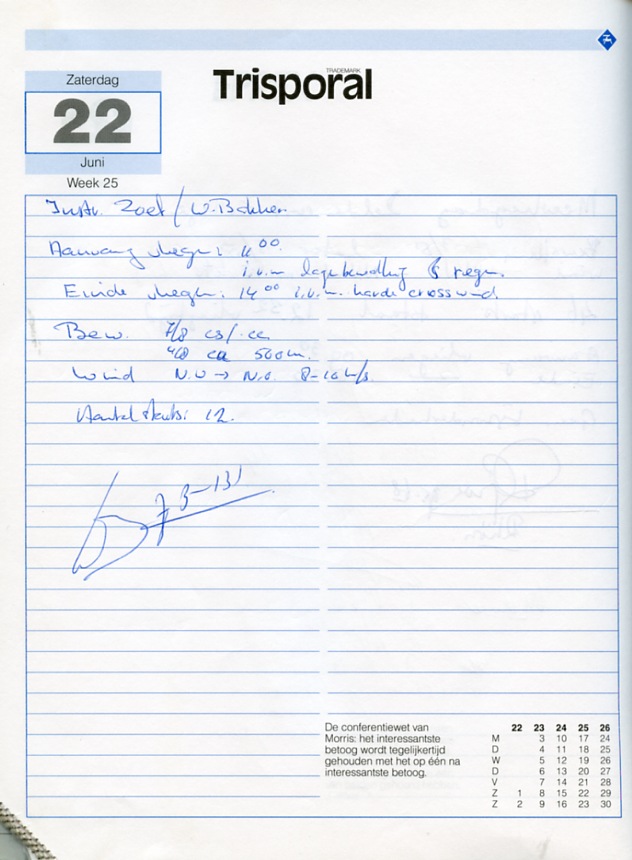 Zaterdag
22
Juni
Week 25
TRADEMARK
Trisporal
Instr. Zoet / W. Bakker.
Aanvang vliegen: 11 00
i.v.m lage bewolking & regen.
Einde vliegen: 14 00 i.v.m. harde crosswind.
Bew. 7/8 cs/cc
4/8 ca 500m.
Wind N.W → N.O. 8-10 m/s.
Aantal starts: 12.
De conferentiewet van
Morris: het interessantste
betoog wordt tegelijkertijd
gehouden met het op één na
interessantste betoog.
22 23 24 25 26
M 3 10 17 24
D 4 11 18 25
W 5 12 19 26
D 6 13 20 27
V 7 14 21 28
Z 1 8 15 22 29
Z 2 9 16 23 30